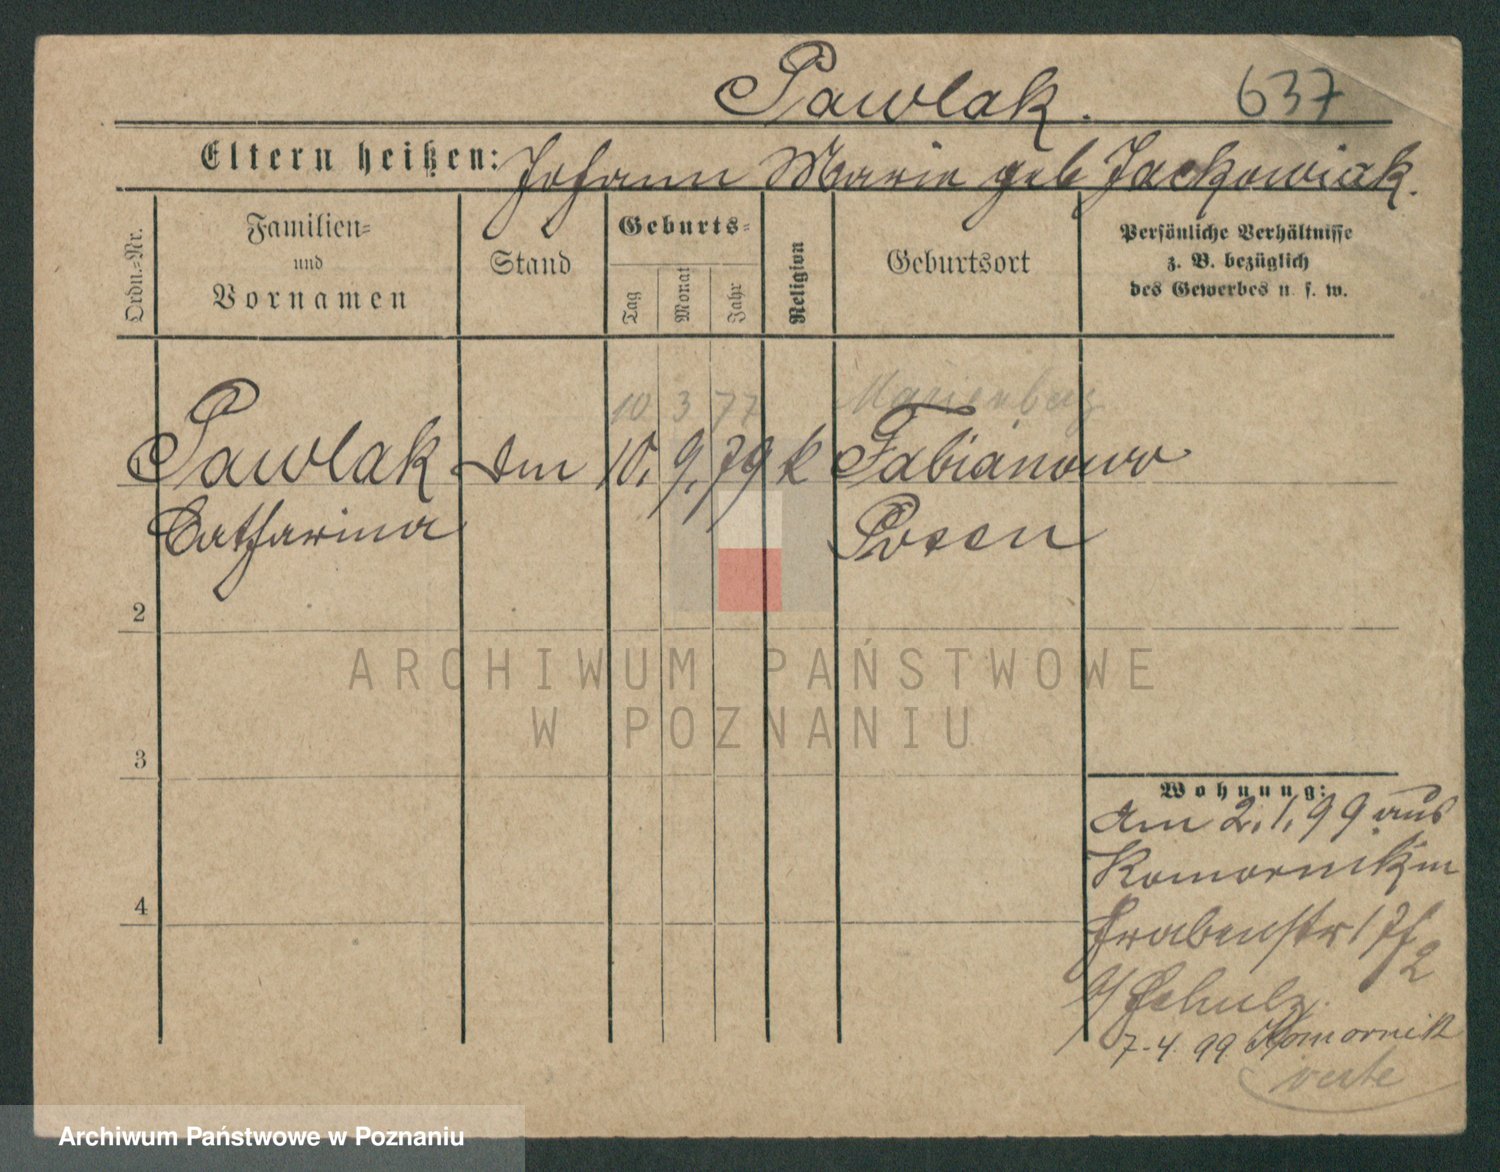 Pawlak. 637
Eltern heißen: Johann Marie geb Jackowiak.
Ordn.=Nr.
Familien=
und
Vornamen
Stand
Geburts=
Tag
Monat
Jahr
Religion
Geburtsort
Persönliche Verhältnisse
z. B. bezüglich
des Gewerbes u. s. w.
10 3 77 Marienberg
1 Pawlak 10. 9. 79 k Fabianowo
Catharina Posen
2
3
4
ARCHIWUM PAŃSTWOWE
W POZNANIU
Wohnung:
am 2.1.99 aus
Komornik in
Grabenstr 17
2
b/ Schulz.
7.4.99 Komornik
verte
Archiwum Państwowe w Poznaniu